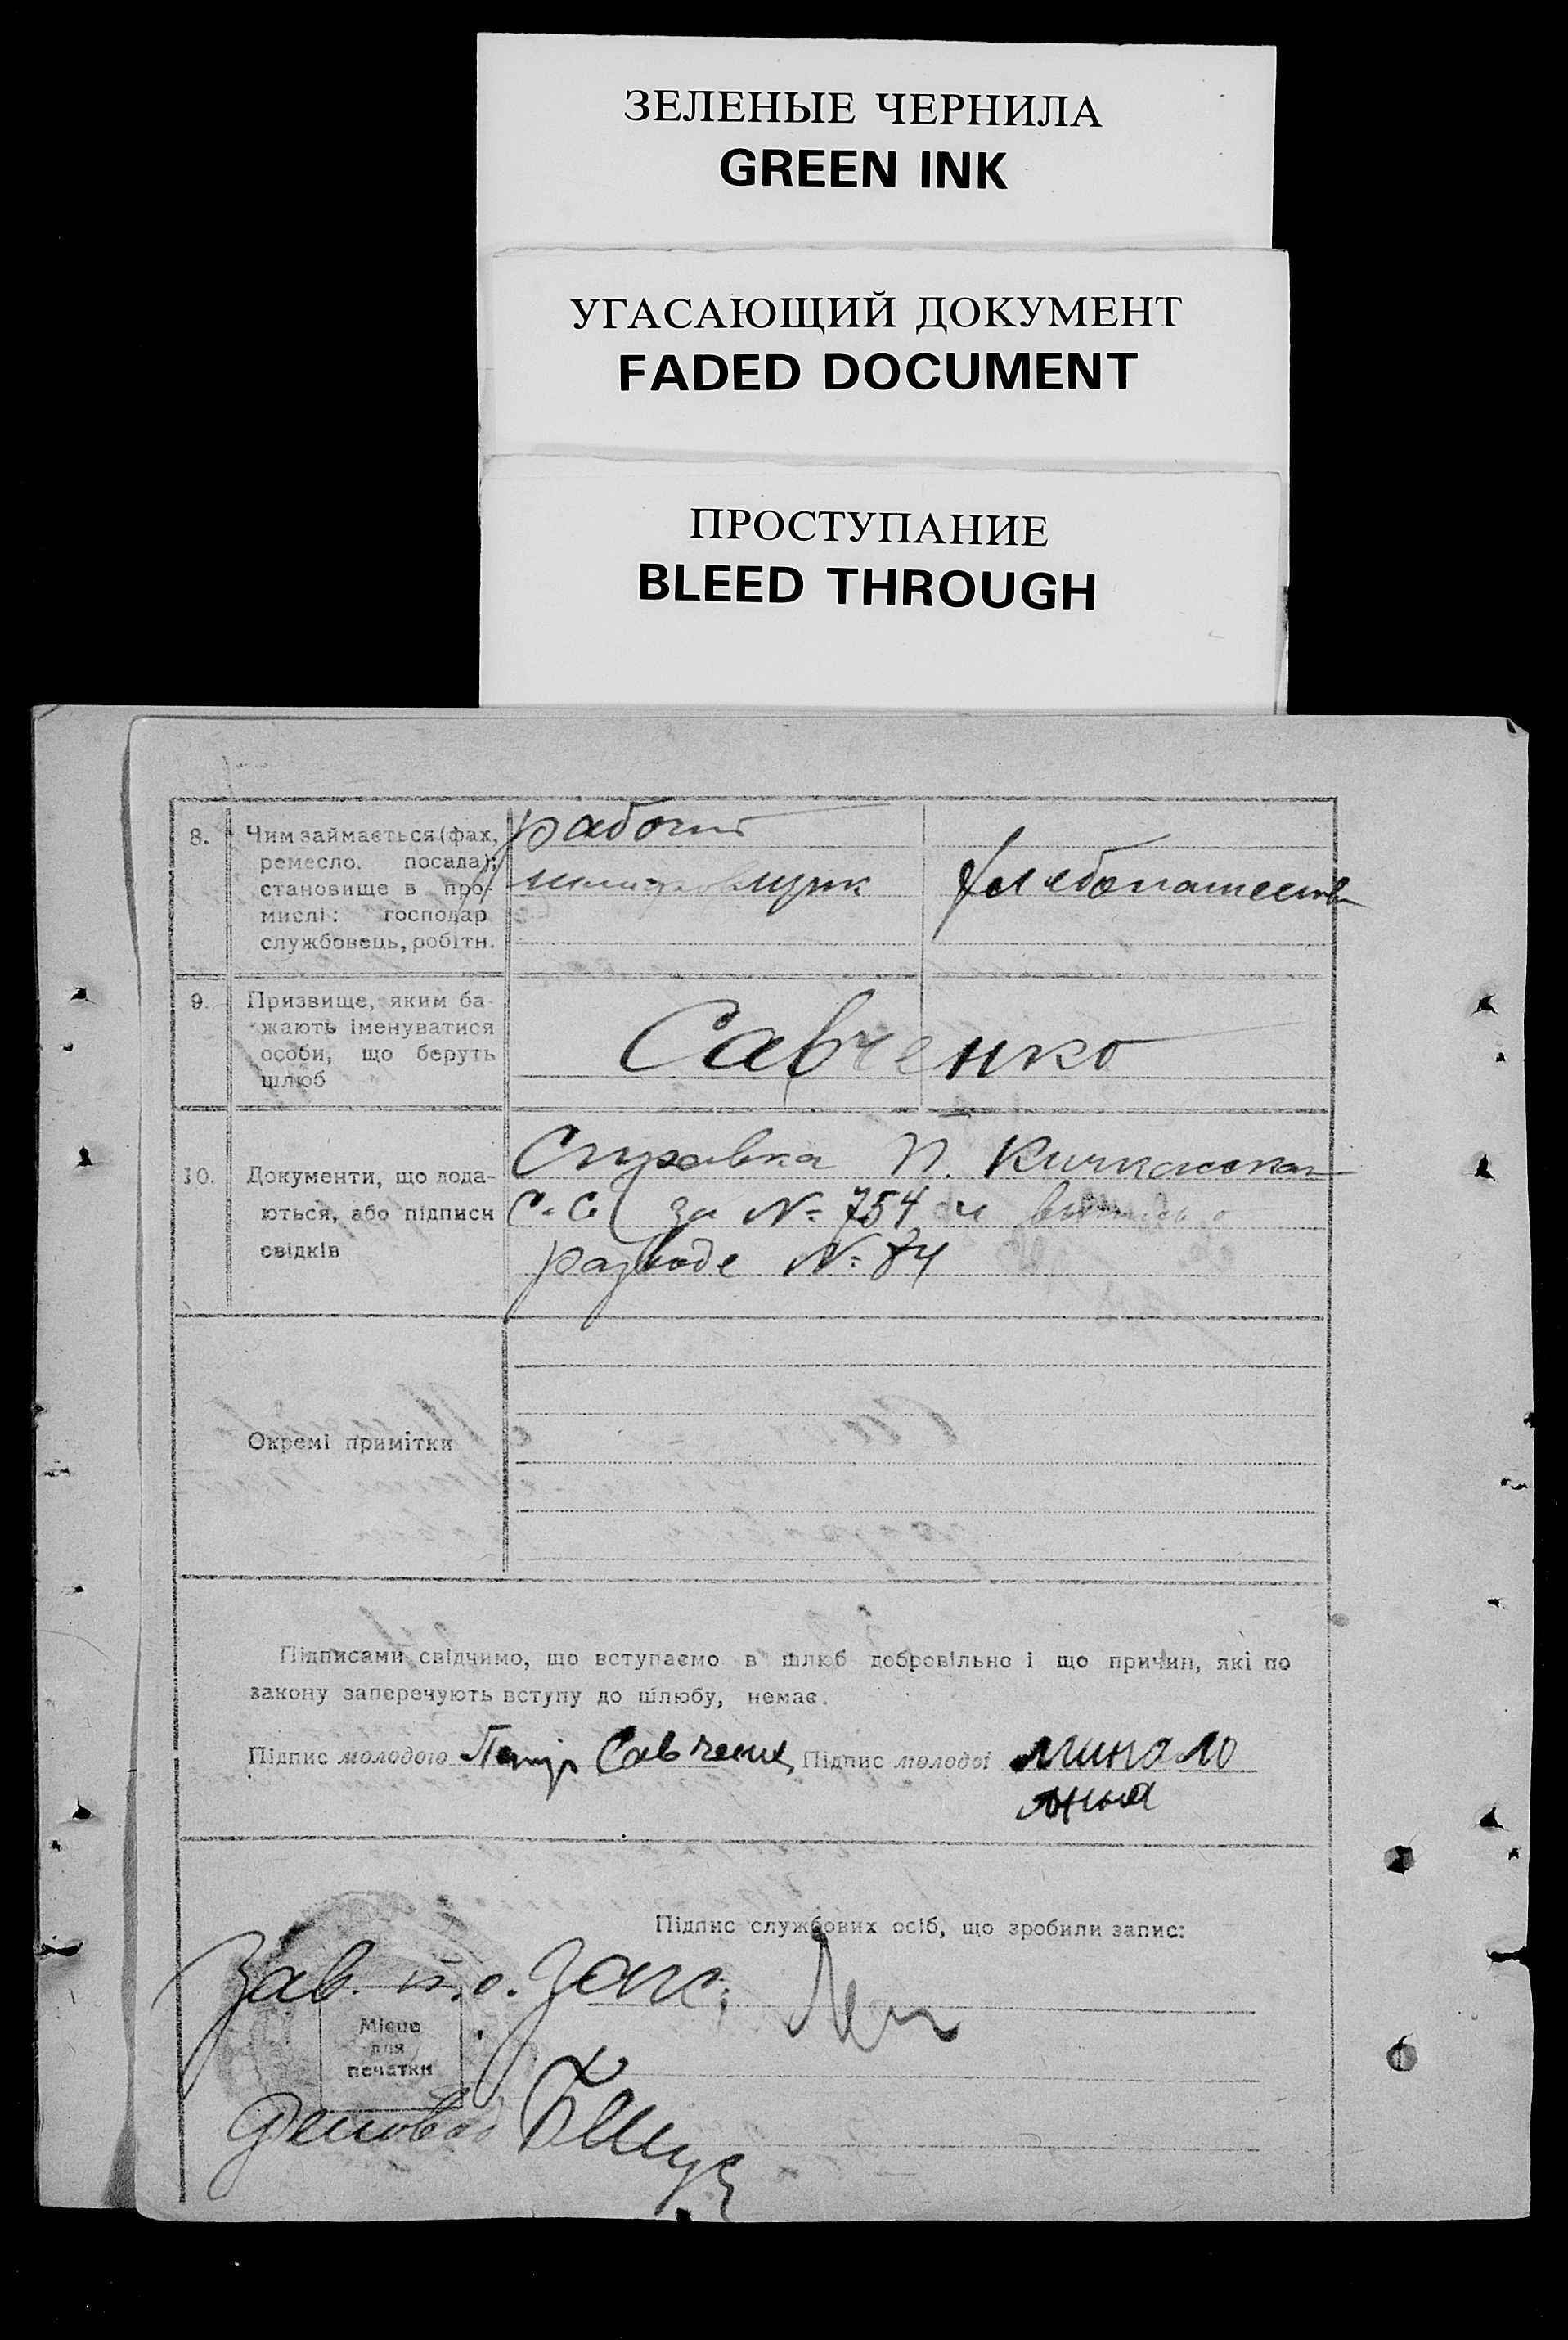 ЗЕЛЕНЫЕ ЧЕРНИЛА
GREEN INK
УГАСАЮЩИЙ ДОКУМЕНТ
FADED DOCUMENT
ПРОСТУПАНИЕ
BLEED THROUGH
8.
Чим займається (фах,
ремесло, посада);
становище в про-
мислі: господар
службовець, робітн.
рабочий
9.
Призвище, яким ба-
жають іменуватися
особи, що беруть
шлюб
Савченко
10.
Документи, що пода-
ються, або підписи
свідків
Справка П. Кичкасская
С.С. за №: 754 и выпись о
разводе №: 84
Окремі примітки
Підписами свідчимо, що вступаємо в шлюб добровільно і що причин, які по
закону заперечують вступу до шлюбу, немає.
Підпис молодого Петр Савченко Підпис молодої Минало
Анна
Підпис службових осіб, що зробили запис:
Зав. п.о. Загс:
Місце
для
печатки
Деловод